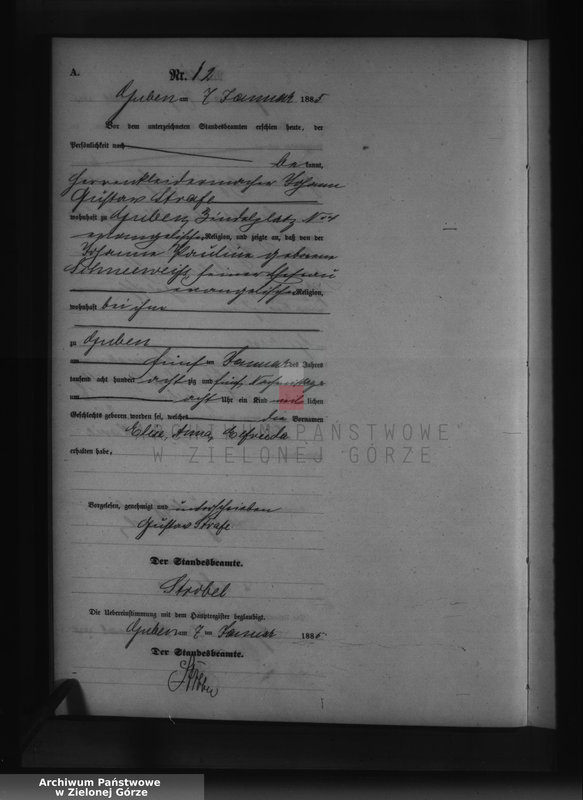 A.
Nr. 12
Guben am 7 Januar 1885
Vor dem unterzeichneten Standesbeamten erschien heute, der
Persönlichkeit nach
be kannt,
Herrenkleidermacher Johann
Gustav Strafe
wohnhaft zu Guben, Zindelplatz No 4
evangelischer Religion, und zeigte an, daß von der
Johanne Pauline geborenen
Schneeweiß, seiner Ehefrau
evangelischer Religion,
wohnhaft bei ihm
zu Guben
am fünf ten Januar des Jahres
tausend acht hundert acht zig und fünf Nachmittags
um acht Uhr ein Kind weib lichen
Geschlechts geboren worden sei, welches die Vornamen
Elise, Anna, Elfrieda
erhalten habe.
PAŃSTWOWE
W ZIELONEJ GÓRZE
Vorgelesen, genehmigt und unterschrieben
Gustav Strafe
Der Standesbeamte.
Ströbel
Die Uebereinstimmung mit dem Hauptregister beglaubigt.
Guben am 7 ten Januar 1885
Der Standesbeamte.
Archiwum Państwowe
w Zielonej Górze